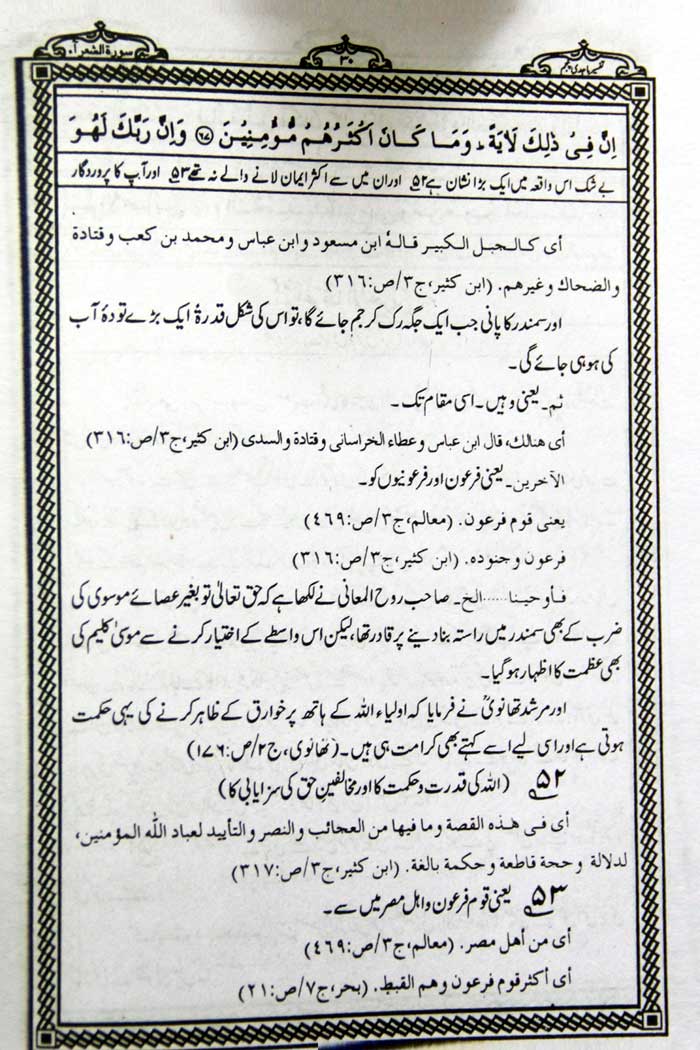 تفسیر ماجدی پنجم
۳۰
سورة الشعرآء
اِنَّ فِیْ ذٰلِكَ لَاٰیَةً ؕ وَمَا كَانَ اَكْثَرُهُمْ مُّؤْمِنِیْنَ ﴿۶۷﴾ وَاِنَّ رَبَّكَ لَهُوَ
بے شک اس واقعہ میں ایک بڑا نشان ہے ۵۲ اور ان میں سے اکثر ایمان لانے والے نہ تھے ۵۳ اور آپ کا پروردگار
أی كـالـجبل الـكبیـر قـالـهٗ ابن مسعود وابن عباس ومحمد بن كعب وقتادة
والضحاك وغیرهم. (ابن كثیر،ج۳/ص:۳۱۶)
اور سمندر کا پانی جب ایک جگہ رک کر جم جائے گا، تو اس کی شکل قدرۃً ایک بڑے تودۂ آب
کی ہو ہی جائے گی۔
ثم۔ یعنی وہیں۔ اسی مقام تک۔
أی هنالك، قال ابن عباس وعطاء الخراسانی وقتادة والسدی (ابن كثیر،ج۳/ص:۳۱۶)
الآخرین۔ یعنی فرعون اور فرعونیوں کو۔
یعنی قوم فرعون. (معالم،ج۳/ص:۴۶۹)
فرعون وجنوده. (ابن كثیر،ج۳/ص:۳۱۶)
فـأوحیـنـا......الخ۔ صاحب روح المعانی نے لکھا ہے کہ حق تعالیٰ تو بغیر عصائے موسوی کی
ضرب کے بھی سمندر میں راستہ بنا دینے پر قادر تھا، لیکن اس واسطے کے اختیار کرنے سے موسیٰ کلیم کی
بھی عظمت کا اظہار ہو گیا۔
اور مرشد تھانویؒ نے فرمایا کہ اولیاء اللہ کے ہاتھ پر خوارق کے ظاہر کرنے کی یہی حکمت
ہوتی ہے اور اسی لیے اسے کہتے بھی کرامت ہی ہیں۔ (تھانوی، ج۲/ص:۱۷۶)
۵۲ (اللہ کی قدرت و حکمت کا اور مخالفینِ حق کی سزایابی کا)
أی فـی هـذه القصة وما فیها من العجائب والنصر والتأیید لعباد اللّٰه المؤمنین،
لدلالة وحجة قاطعة وحكمة بالغة. (ابن كثیر،ج۳/ص:۳۱۷)
۵۳ یعنی قوم فرعون و اہل مصر میں سے۔
أی من أهل مصر. (معالم،ج۳/ص:۴۶۹)
أی أكثر قوم فرعون وهم القبط. (بحر،ج۷/ص:۲۱)